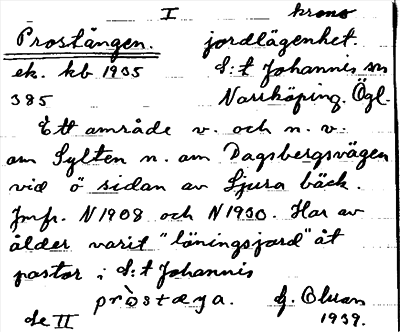 I krono
Prostängen. jordlägenhet.
ek. kb 1935 S:t Johannis sn
385 Norrköping. Ögl.
Ett område v. och n. v.
om Sylten n. om Dagsbergsvägen
vid ö sidan av Ljura bäck.
Jmfr. N1908 och N1930. Har av
ålder varit "löningsjord" åt
pastor i S:t Johannis
pròstæŋa. G. Olson
se II 1939.